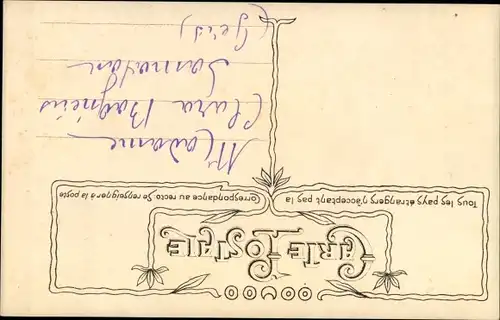 CARTE POSTALE
Tous les pays étrangers n'acceptant pas la
Correspondance au recto. Se renseigner à la poste
Madame
Clara
Samatan
(Gers)